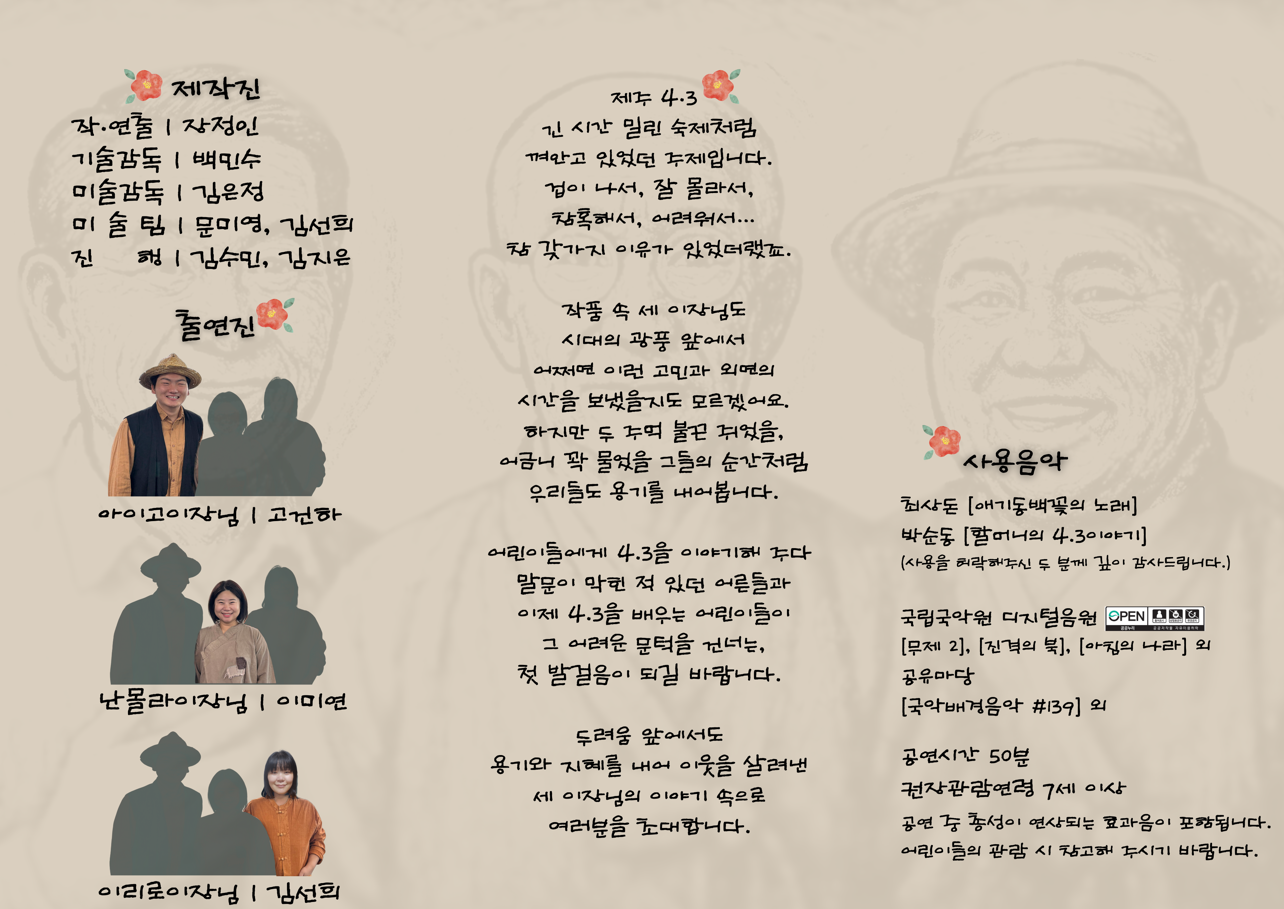 제작진
작·연출 | 장정인
기술감독 | 백민수
미술감독 | 김은정
미 술 팀 | 문미영, 김선희
진 행 | 김수민, 김지은
출연진
아이고이장님 | 고건하
난몰라이장님 | 이미연
이리로이장님 | 김선희
제주 4·3
긴 시간 밀린 숙제처럼
껴안고 있었던 주제입니다.
겁이 나서, 잘 몰라서,
참혹해서, 어려워서...
참 갖가지 이유가 있었더랬죠.
작품 속 세 이장님도
시대의 광풍 앞에서
어쩌면 이런 고민과 외면의
시간을 보냈을지도 모르겠어요.
하지만 두 주먹 불끈 쥐었을,
어금니 꽉 물었을 그들의 순간처럼
우리들도 용기를 내어봅니다.
어린이들에게 4.3을 이야기해 주다
말문이 막힌 적 있던 어른들과
이제 4.3을 배우는 어린이들이
그 어려운 문턱을 건너는,
첫 발걸음이 되길 바랍니다.
두려움 앞에서도
용기와 지혜를 내어 이웃을 살려낸
세 이장님의 이야기 속으로
여러분을 초대합니다.
사용음악
최상돈 [애기동백꽃의 노래]
박순동 [할머니의 4.3이야기]
(사용을 허락해주신 두 분께 깊이 감사드립니다.)
국립국악원 디지털음원 OPEN 공공누리
[무제 2], [진격의 북], [아침의 나라] 외
공유마당
[국악배경음악 #139] 외
공연시간 50분
권장관람연령 7세 이상
공연 중 총성이 연상되는 효과음이 포함됩니다.
어린이들의 관람 시 참고해 주시기 바랍니다.